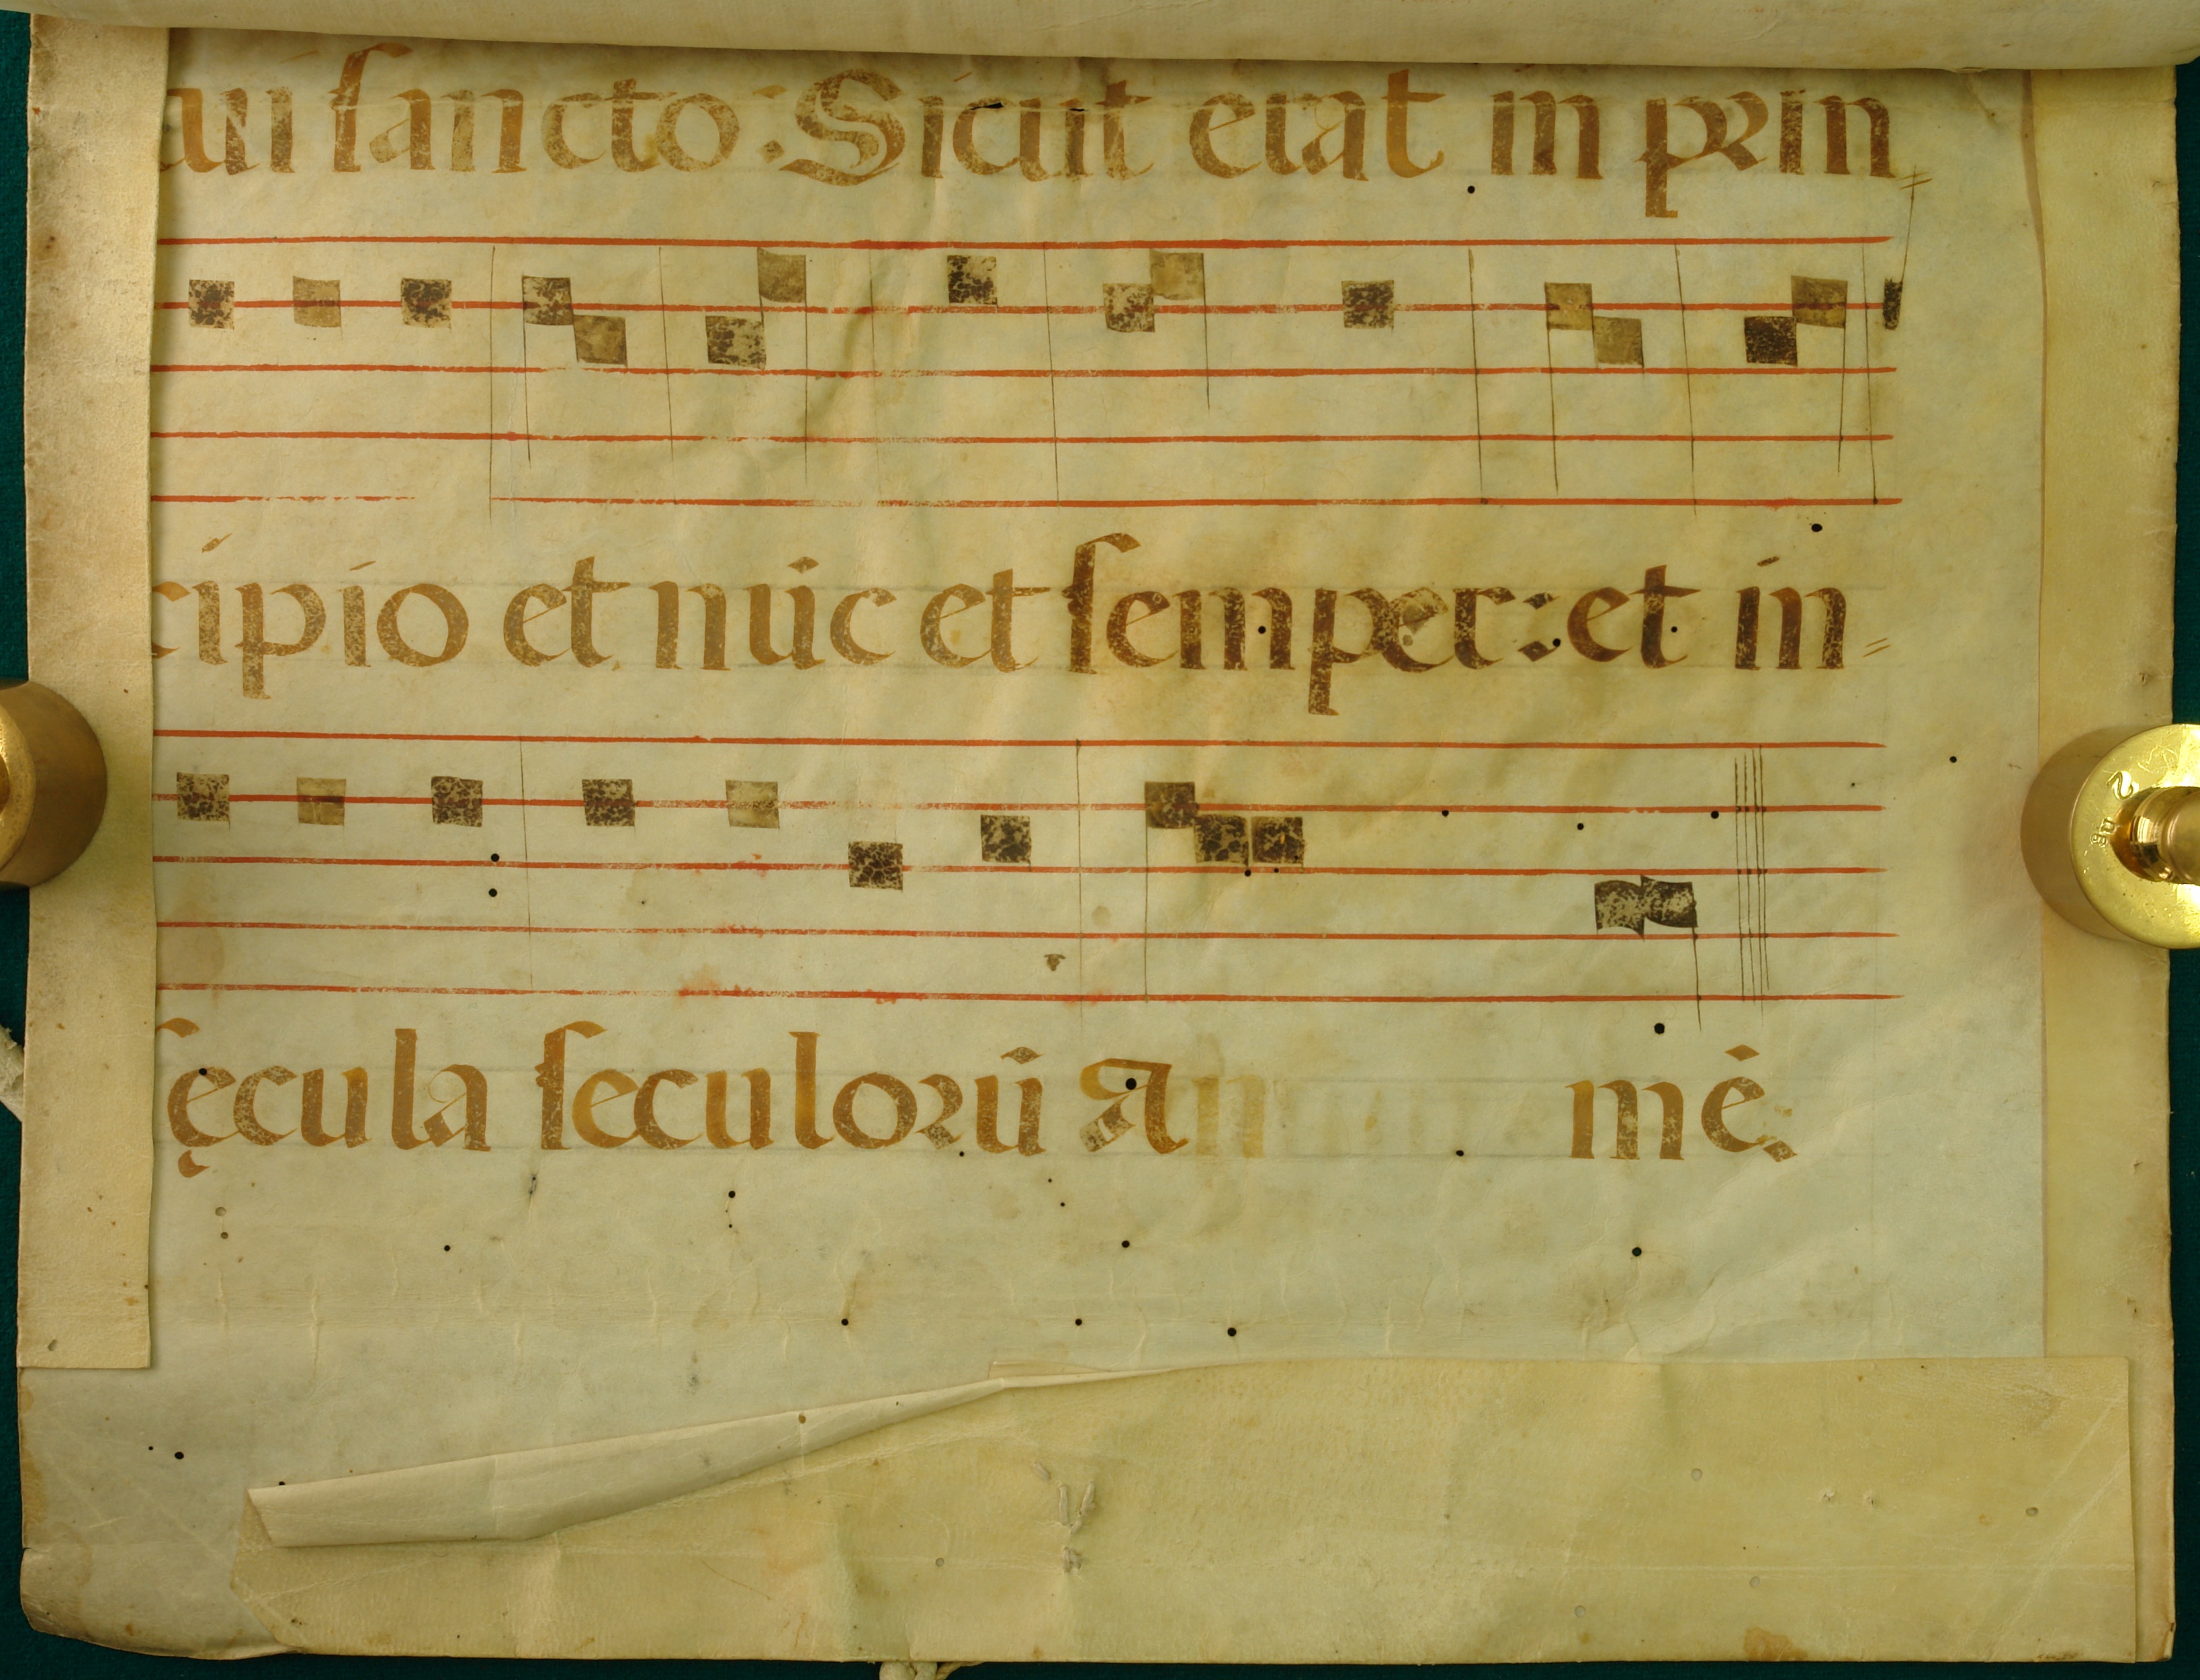 ui sancto: Sicut erat in prin=
cipio et nūc et semper: et in=
sęcula seculorū A mē.